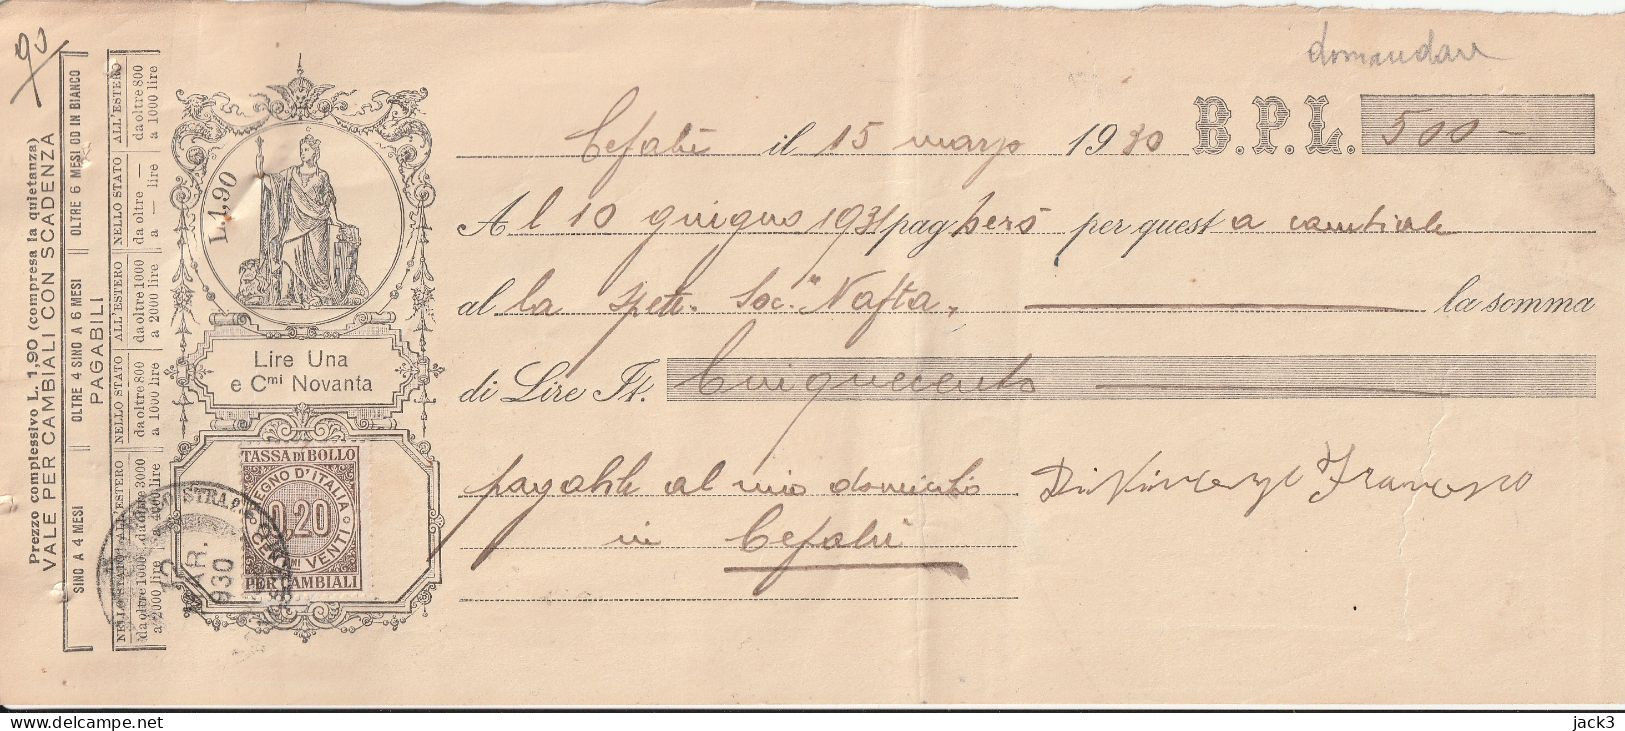 domandare
Cefalù il 15 marzo 1930 B.P.L. 500 —
Al 10 giugno 1931 pagherò per questa cambiale
alla Spett. Soc. "Nafta, la somma
di Lire It. Cinquecento
pagabile al mio domicilio
in Cefalù
Francesco
90
Prezzo complessivo L. 1,90 (compresa la quietanza)
VALE PER CAMBIALI CON SCADENZA
SINO A 4 MESI OLTRE 4 SINO A 6 MESI OLTRE 6 MESI OD IN BIANCO
PAGABILI
NELLO STATO ALL'ESTERO NELLO STATO ALL'ESTERO NELLO STATO ALL'ESTERO
da oltre 1000 da oltre 3000 da oltre 800 da oltre 1000 da oltre — da oltre 800
a 2000 lire a 4000 lire a 1000 lire a 2000 lire a — lire a 1000 lire
L.1,90
Lire Una
e Cmi Novanta
TASSA DI BOLLO
REGNO D'ITALIA
0,20
CENTMI VENTI
PER CAMBIALI
MAR.
930
jack3